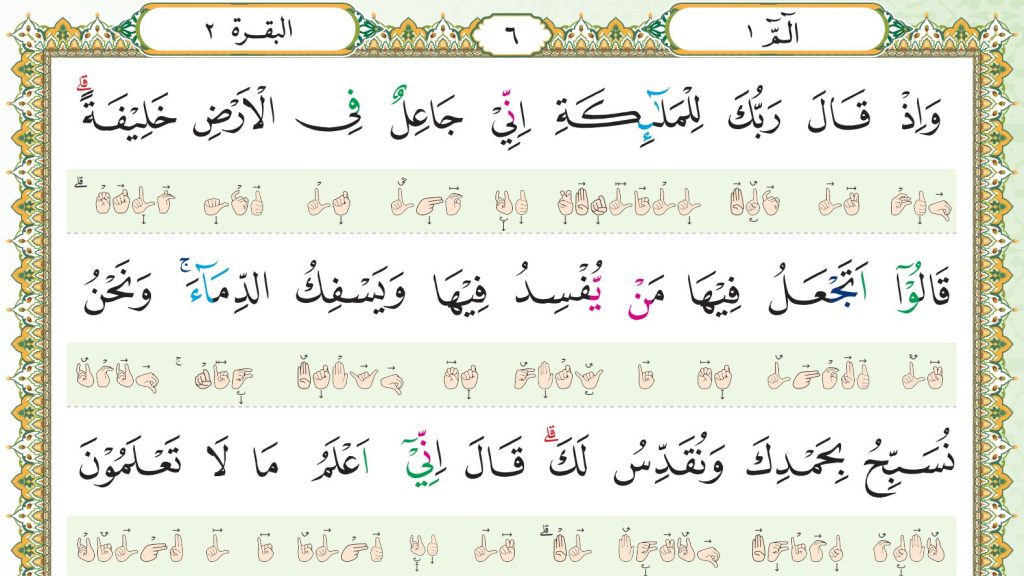 الٓمّٓ ١
٦
البقرة ٢
وَاِذْ قَالَ رَبُّكَ لِلْمَلٰٓئِكَةِ اِنِّيْ جَاعِلٌ فِى الْاَرْضِ خَلِيْفَةًۗ
قَالُوْٓا اَتَجْعَلُ فِيْهَا مَنْ يُّفْسِدُ فِيْهَا وَيَسْفِكُ الدِّمَاۤءَۚ وَنَحْنُ
نُسَبِّحُ بِحَمْدِكَ وَنُقَدِّسُ لَكَۗ قَالَ اِنِّيْٓ اَعْلَمُ مَا لَا تَعْلَمُوْنَ